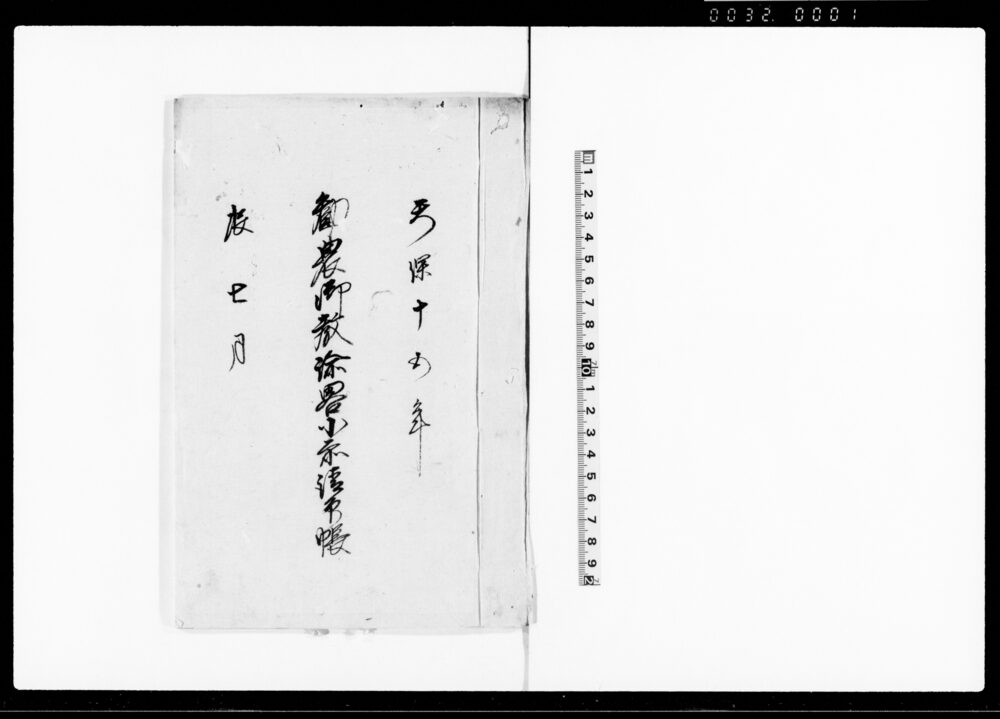 0032. 0001
天保十五年
勧農御教諭畧小示請印帳
辰七月
1 2 3 4 5 6 7 8 9 10 1 2 3 4 5 6 7 8 9 2